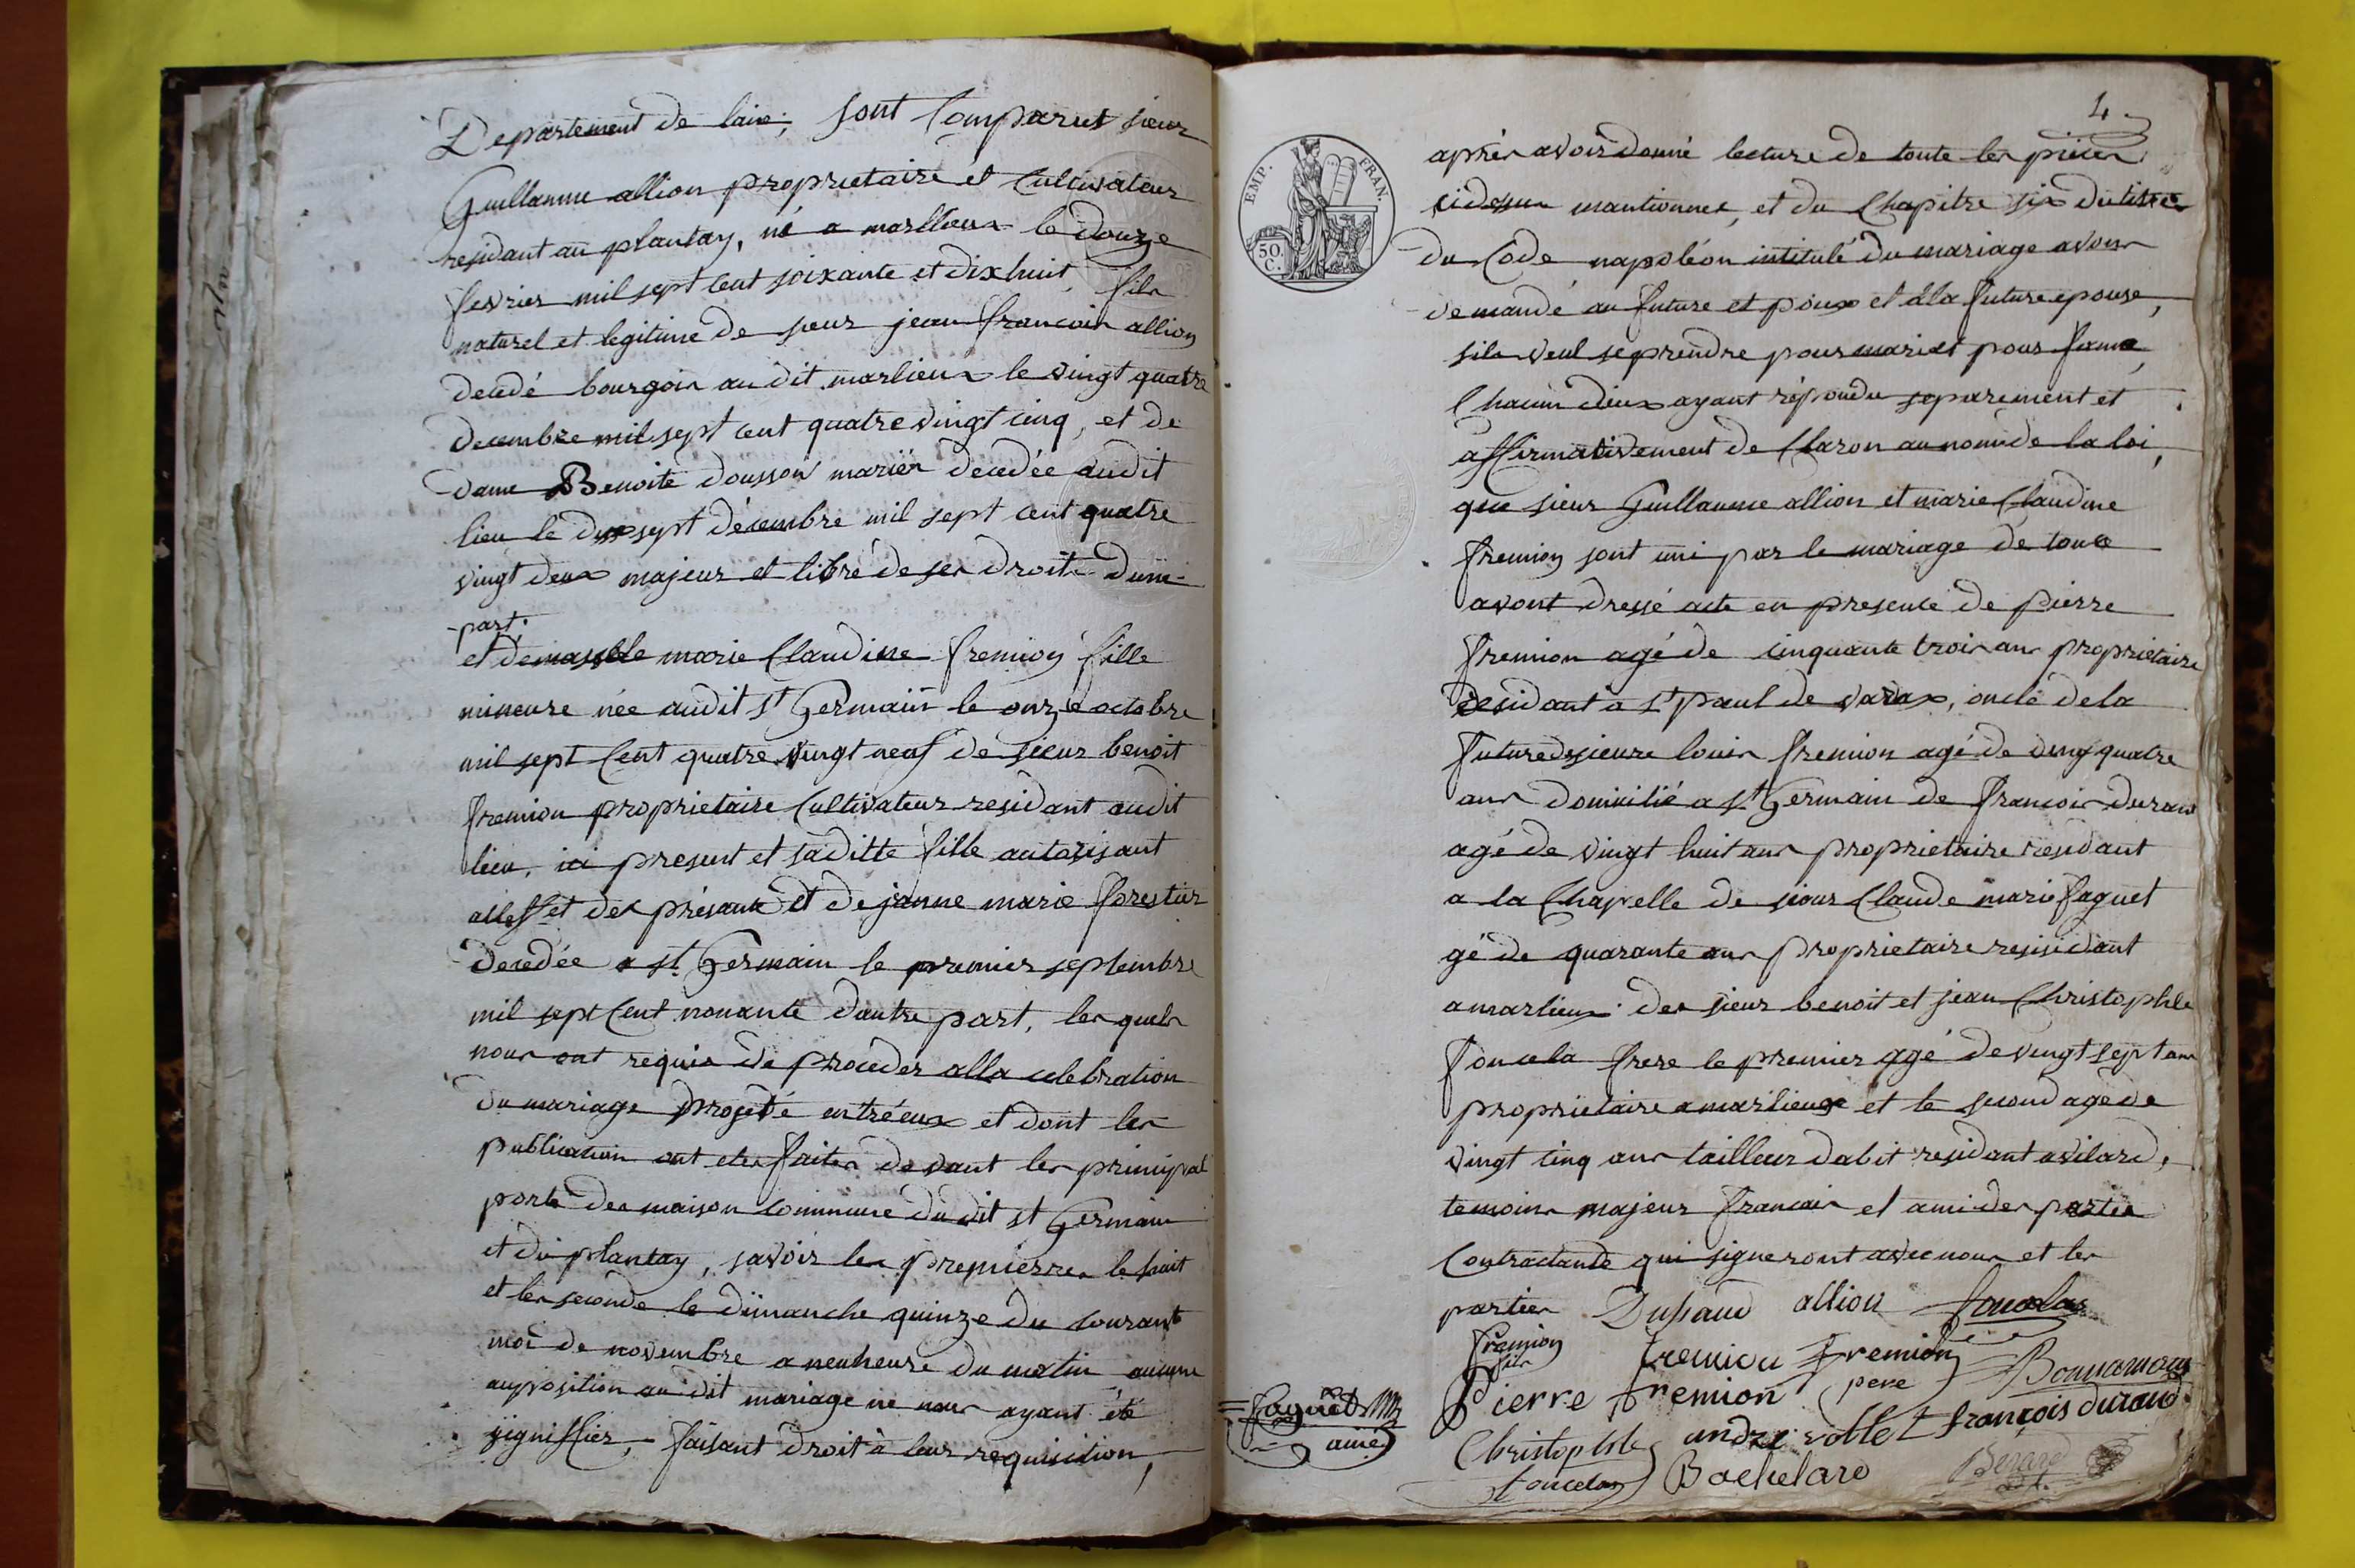 Departement de lain, sont Comparut sieur
Guillaume allion proprietaire et Cultivateur
residant au plantay, né a marllieux le douze
fevrier mil sept cent soixante et dix huit, fils
naturel et legitime de sieur jean francois allion
decedé bourgois au dit marlieux le vingt quatre
decembre mil sept cent quatre vingt cinq, et de
dame Benoite dousson mariés decedée audit
lieu le dix sept décembre mil sept cent quatre
vingt deux majeur et libre de ses droits dune
part.
et demaselle marie Claudine fremion fille
mineure née audit st Germain le onze octobre
mil sept Cent quatre vingt neuf de sieur benoit
fremion proprietaire Cultivateur residant audit
lieu, ici present et saditte fille autorisant
a leffet des présante et de janne marie forestier
decedée a st Germain le premier septembre
mil sept Cent nonante dautre part, les quels
nous ont requis de proceder alla celebration
du mariage projeté entré eux et dont les
publication ont etes faites devant les principal
porte des maison commune du dit st Germain
et du plantay, savoir les premierres le huit
et les seconde le dimanche quinze du courant
moi de novembre a neuheure du matin aucune
auposition au dit mariage ne nous ayant été
signiffier, faisant droit à leur requisition,
4
EMP. FRAN.
50. C.
après avoir donné lecture de toute les pièces
cidessus mantionnes, et du Chapitre six du titre
du Code napoléon intitulé du mariage avons
demandé au future et poux et a la future epouse,
sils veul se prendre pour mari et pour fame,
Chacun deux ayant répondu separement et
affirmativement de Claron au nom de la loi,
que sieur Guillaume allion et marie Claudine
fremion sont uni par le mariage de touce
avont dressé acte en presence de pierre
fremion agé de cinquante trois ans proprietaire
residant a st paul de varax, oncle de la
future de sieure louis fremion agé de vingquatre
ans domicilié a st Germain de francois durand
agé de vingt huit ans proprietaire residant
a la Chapelle de sieur Claude marie faguet
gé de quarante ans proprietaire resisidant
a marlieux des sieur benoit et jean Christophle
foncela frere le premier agé de vingt sept ans
proprietaire a marlieuxe et le second agé de
vingt cinq ans tailleur dabit residant a vilard,
temoins majeur francais et ami des partie
Contractante qui signeront avec nous et les
parties Duhaud allion foncelas
fremion fils fremion fremion pere Bonnamour
faguet aine Pierre fremion
Christophle foncelas andré vollet françois durand
Bachelard Berard